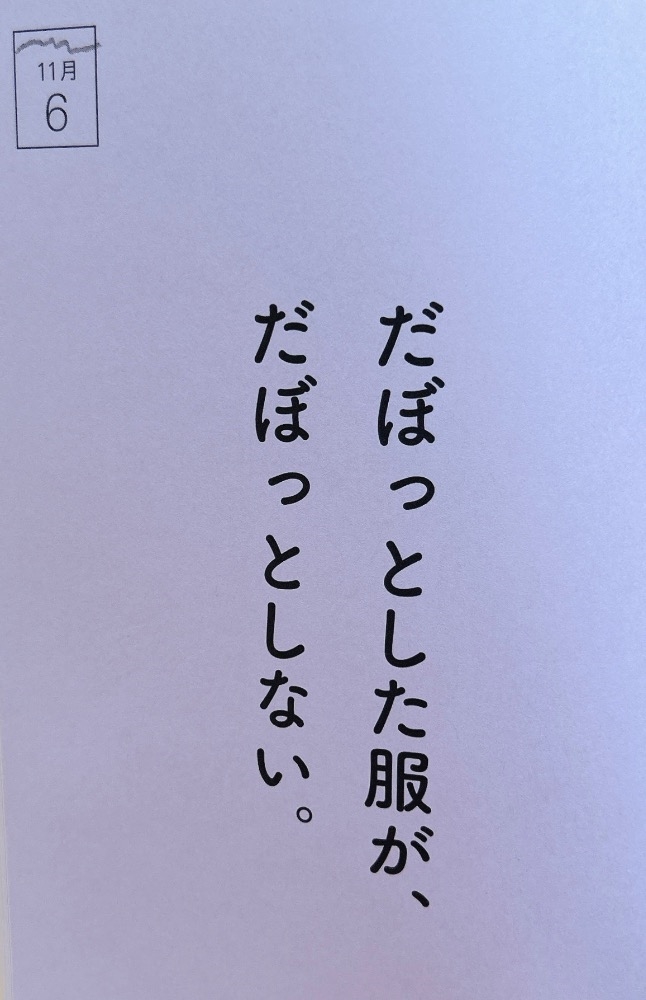 11月
6
だぼっとした服が、
だぼっとしない。